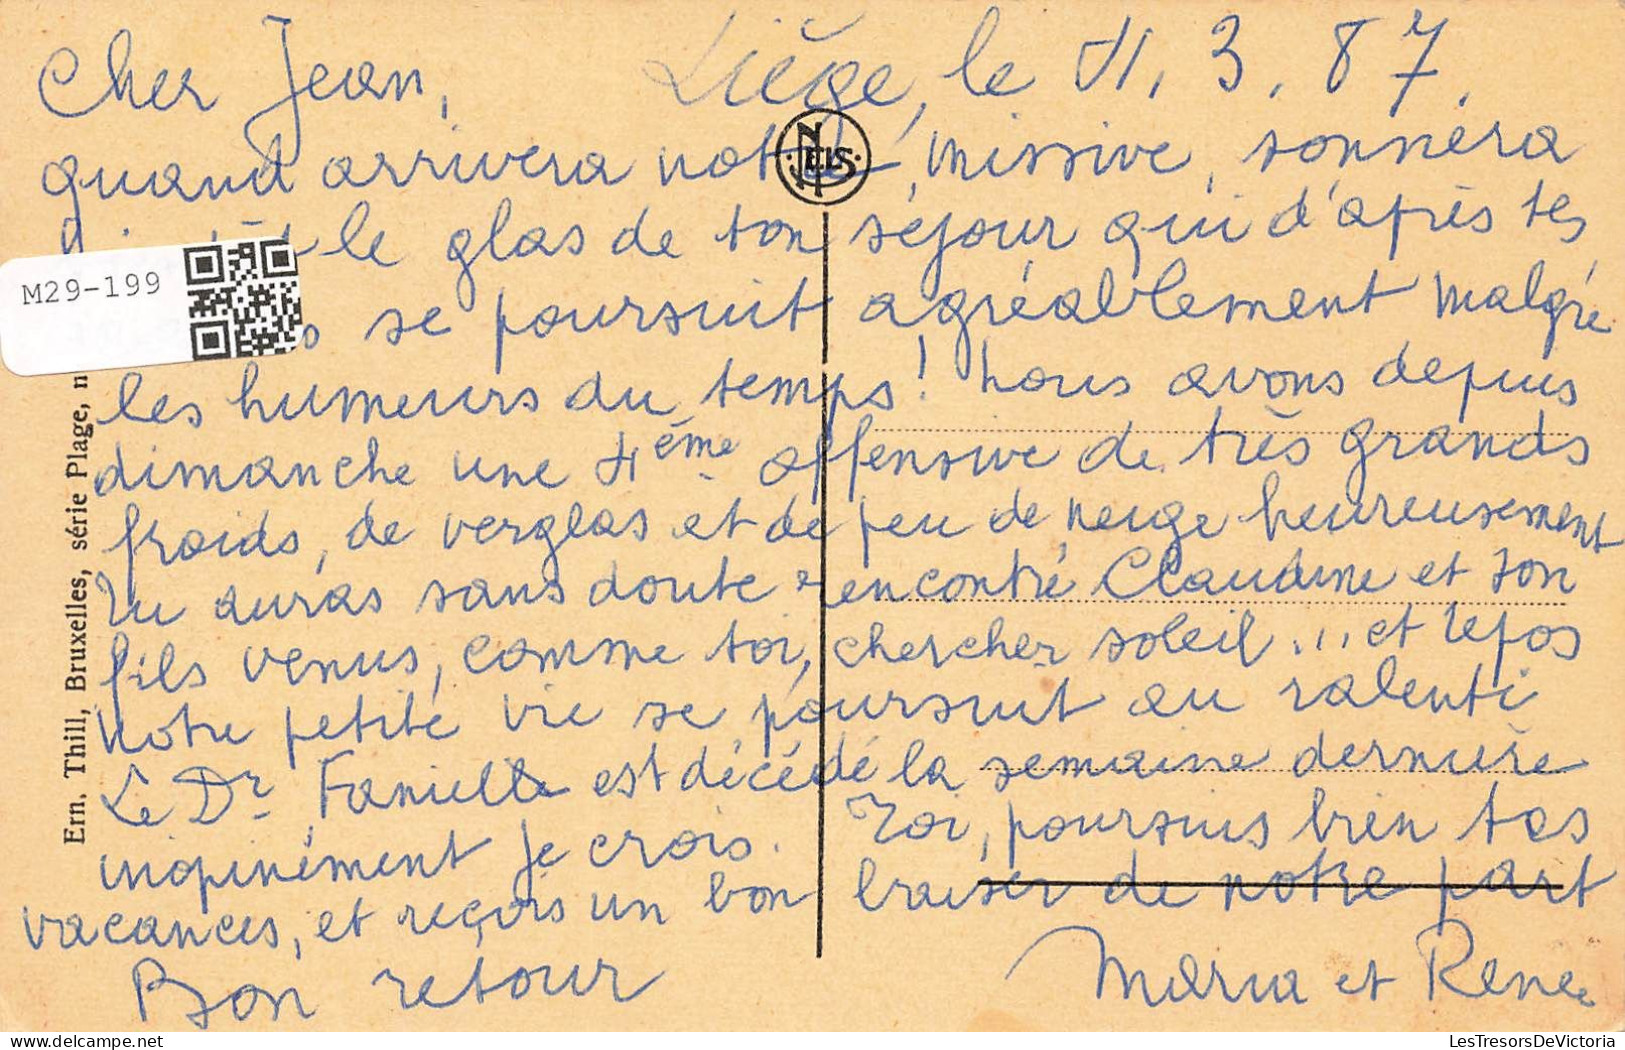 Cher Jean, Liège, le 11.3.87.
quand arrivera notre missive, sonnera
le glas de ton séjour qui d'après tes
se poursuit agréablement malgré
les humeurs du temps! nous avons depuis
dimanche une 4ème offensive de très grands
froids, de verglas et de peu de neige heureusement
Tu auras sans doute rencontré Claudine et son
fils venus, comme toi, chercher soleil... et repos
Notre petite vie se poursuit au ralenti
Le Dr. Fanielle est décédé la semaine dernière
inopinément je crois. Toi, poursuis bien tes
vacances, et reçois un bon baiser de notre part
Bon retour Maria et Renée
NELS
M29-199
Ern. Thill, Bruxelles, série Plage, n
LesTresorsDeVictoria.com